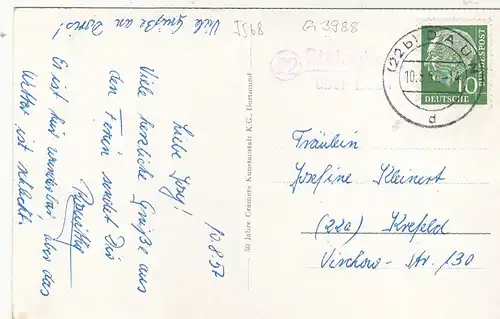 Viele Grüße an Doris!
10.8.57
Liebe Josy!
Viele herzliche Grüße aus
den Ferien sendet Dir
Es ist hier wunderbar, aber das
Wetter ist schlecht.
50 Jahre Cramers Kunstanstalt K.G., Dortmund
G 3988
(22b) DAUN
10.
d
10
DEUTSCHE
BUNDESPOST
über
Fräulein
Josefine Kleinert
(22a) Krefeld
Virchow-Str. 130